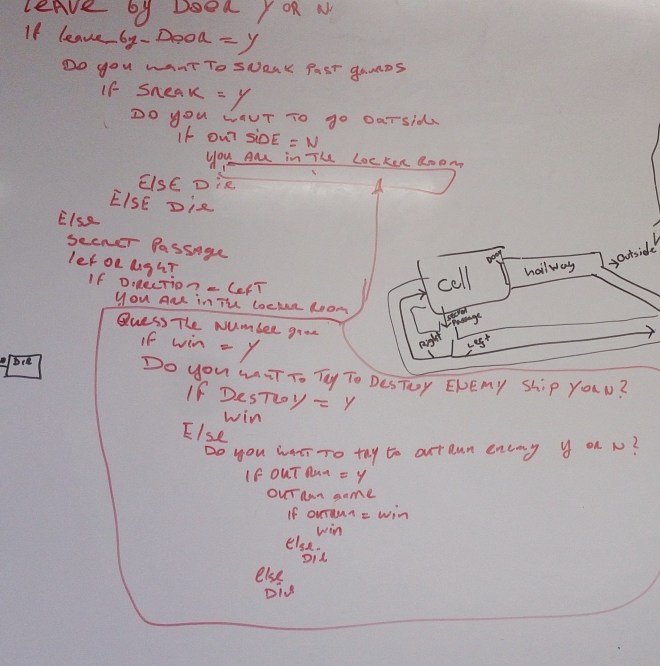 Leave by Door Y or N
If leave_by_Door = Y
Do you want to sneak past guards
If Sneak = Y
Do you want to go outside
If outside = N
you are in the Locker Room
Else Die
Else Die
Else
Secret Passage
lef or Right
If Direction = Left
you are in the Locker Room
Guess the Number game
If win = Y
Do you want to Try to Destroy ENEMY Ship Y or N?
If Destroy = Y
win
Else
Do you want to try to outrun enemy Y or N?
If outrun = Y
outrun game
If outrun = win
win
Else
Die
else
Die
Die
cell
Door
hallway
outside
Secret
Passage
Right
Left